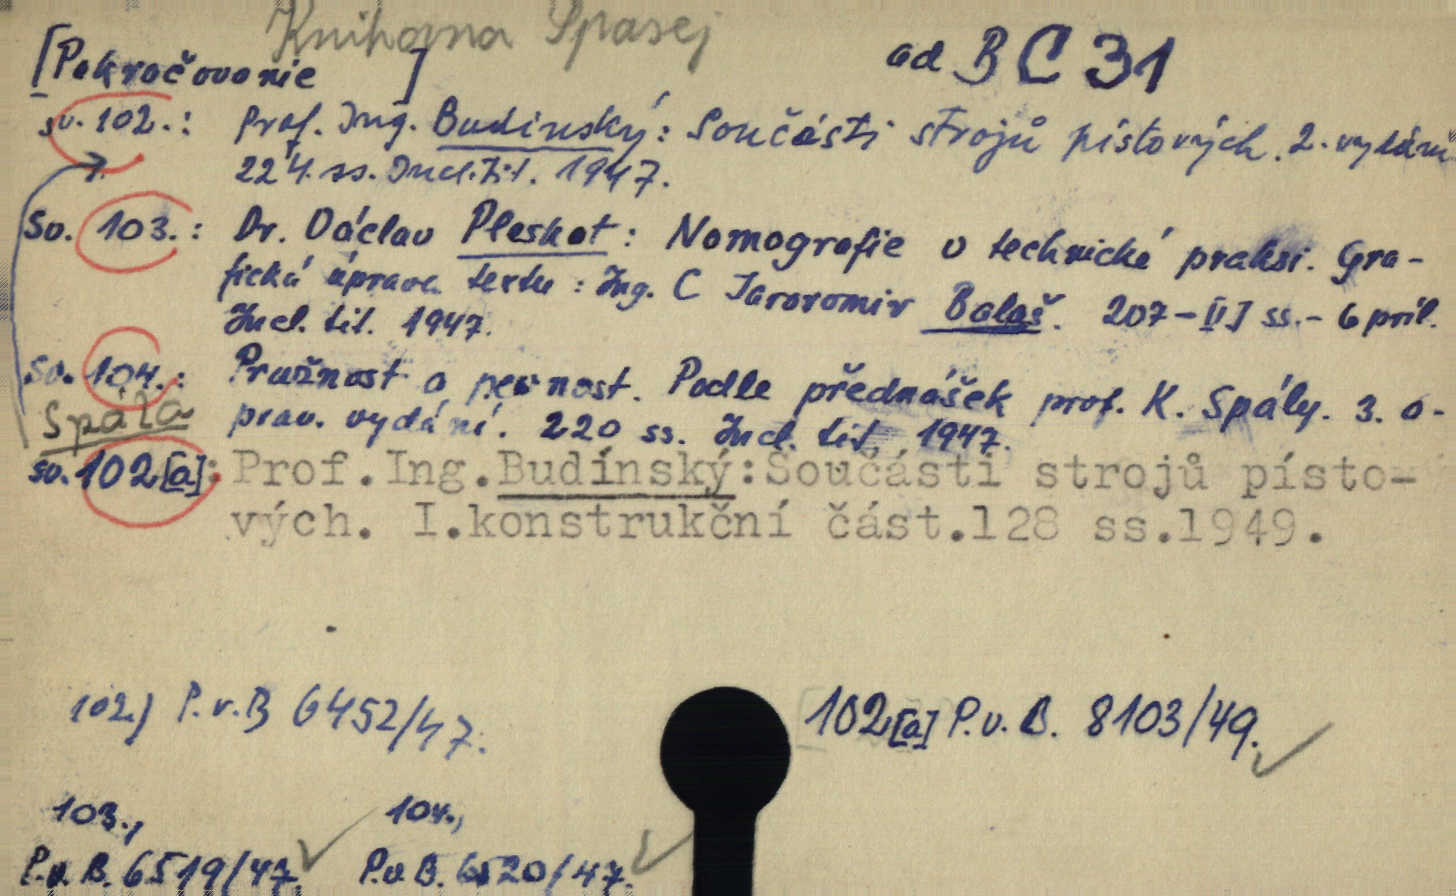 Knihovna Spasej
[Pokračovanie ] ad B C 31
sv. 102.: Prof. Ing. Budinský: Součásti strojů pístových. 2. vydání
224. ss. Incl. tit. 1947.
Sv. 103.: Dr. Václav Pleskot: Nomografie v technické praksi. Gra-
fická úprava textu: Ing. C Jaroromir Balaš. 207-III ss. - 6 príl.
Incl. tit. 1947.
Sv. 104.: Pružnost a pevnost. Podle přednášek prof. K. Spály. 3. o-
Spála prav. vydání. 220 ss. Incl. tit. 1947.
sv. 102[a]: Prof.Ing.Budínský:Součásti strojů písto-
vých. I.konstrukční část.128 ss.1949.
102.) P.v.B 6452/47. 102[a] P.v.B. 8103/49.
103., 104.,
P.v.B. 6519/47. P.v.B. 6520/47.